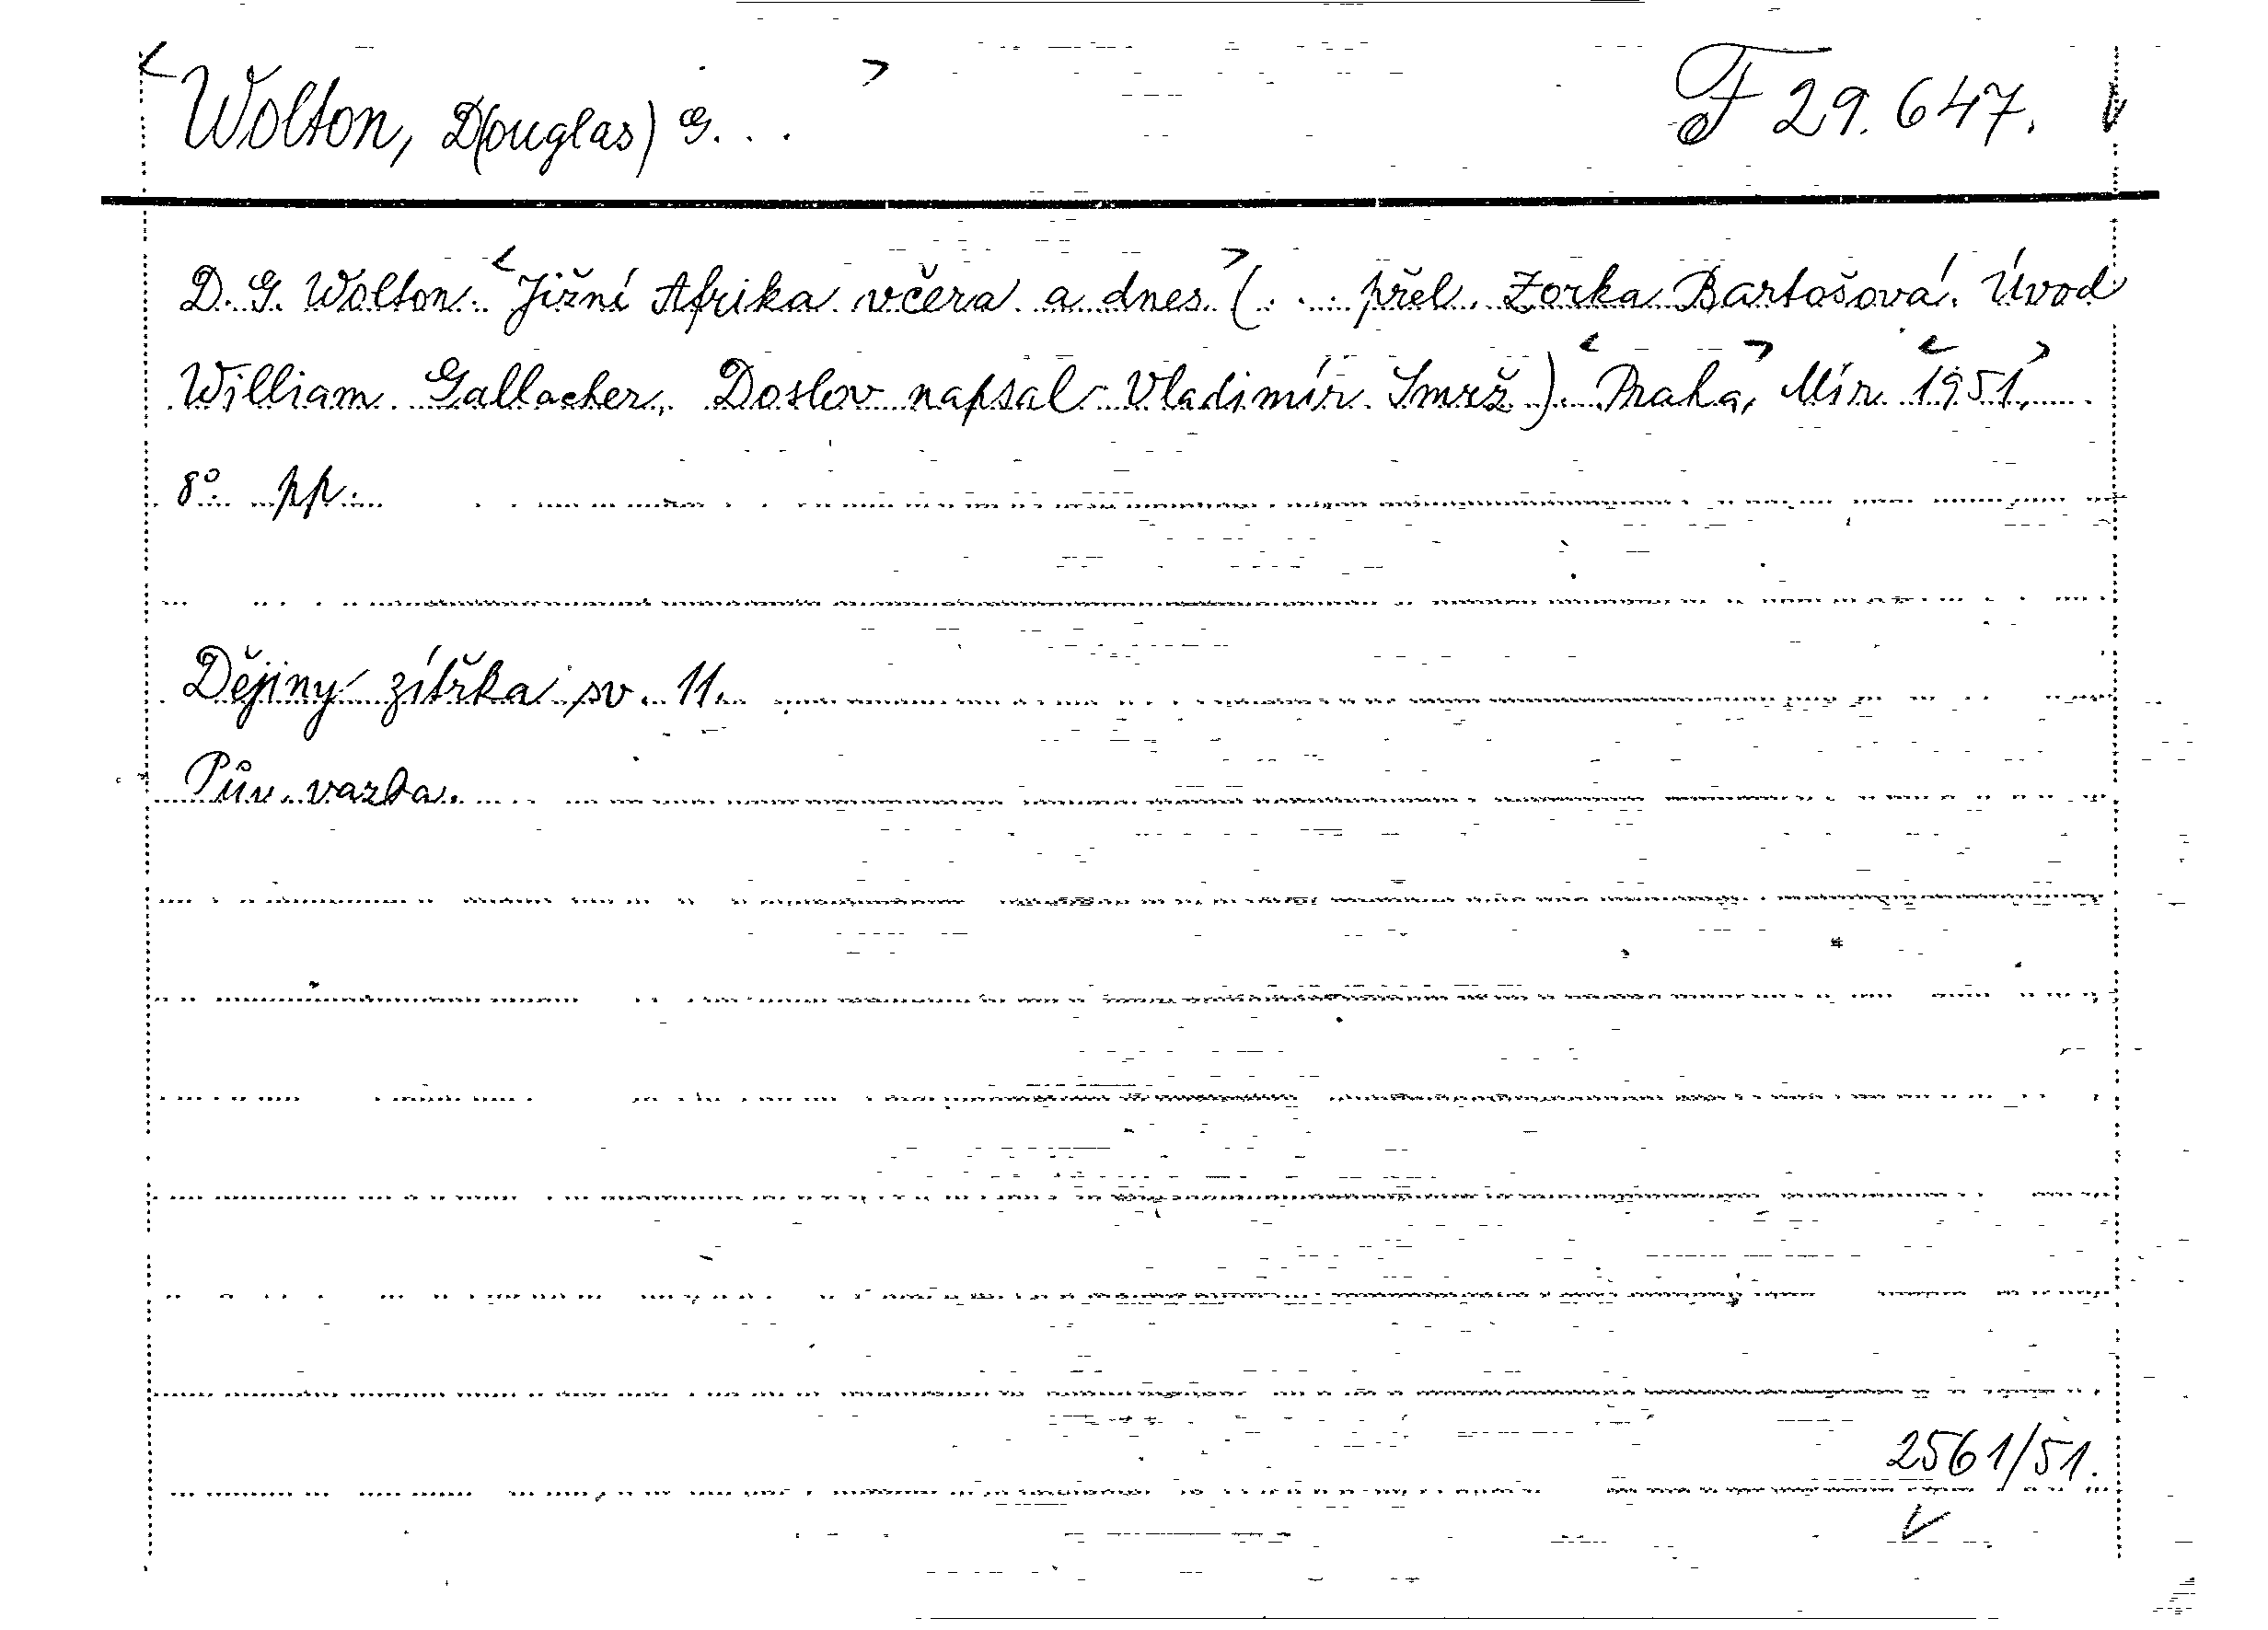 Wolton, D(ouglas) G. . . F 29.647.
D. G. Wolton. Jižní Afrika včera a dnes (. . . přel. Zorka Bartošová. Úvod
William Gallacher, Doslov napsal Vladimír Smrž). Praha, Mír 1951,
8°. pp.
Dějiny zítřka sv. 11.
Pův. vazba.
2561/51.